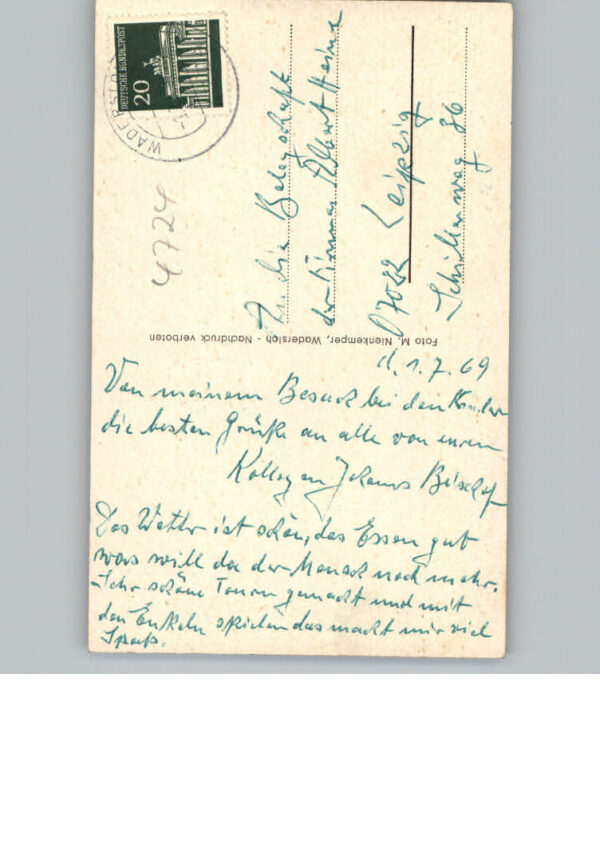 DEUTSCHE BUNDESPOST
20
WADERSLO
4724
An die Belegschaft
der Firma Albert Heine
D 7022 Leipzig
Schillerweg 36
Foto M. Nienkemper, Wadersloh - Nachdruck verboten
d. 1.7.69
Von meinem Besuch bei den Kindern
die besten Grüße an alle von eurem
Kollegen Johannes Bischof
Das Wetter ist schön, das Essen gut
was will da der Mensch noch mehr.
Sehr schöne Touren gemacht und mit
den Enkeln spielen das macht mir viel
Spaß.